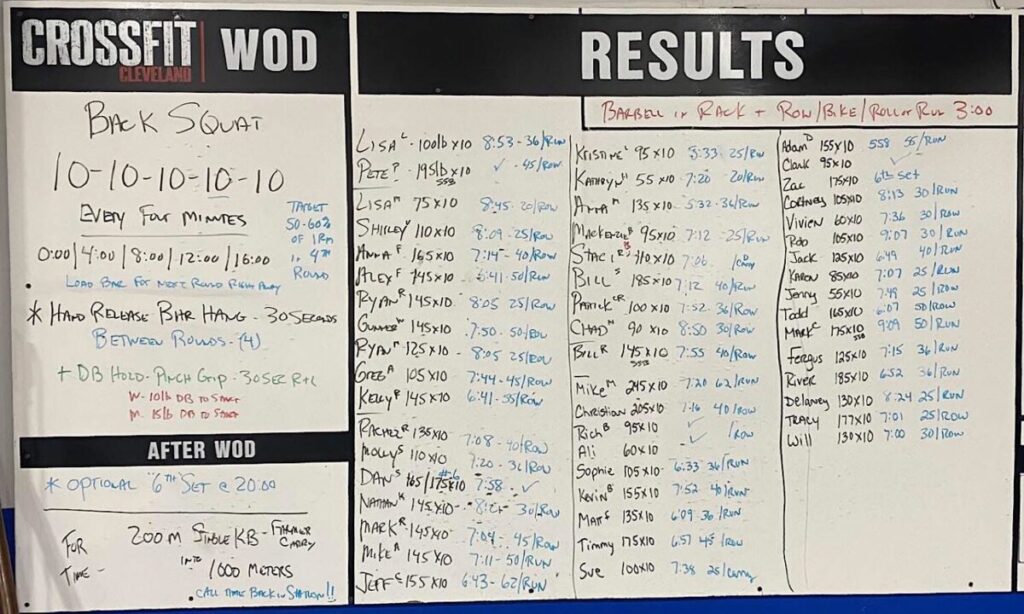 CROSSFIT
CLEVELAND
WOD
BACK SQUAT
10-10-10-10-10
EVERY FOUR MINUTES
0:00/4:00/8:00/12:00/16:00
TARGET
50-60%
OF 1RM
in 4TH
ROUND
LOAD BAR FOR NEXT ROUND RIGHT AWAY
* HAND RELEASE BAR HANG - 30 SECONDS
BETWEEN ROUNDS - (4)
+ DB HOLD - PINCH GRIP - 30 SEC R+L
W - 10lb DB TO START
M - 15lb DB TO START
AFTER WOD
* OPTIONAL "6TH" SET @ 20:00
FOR
TIME -
200 M SINGLE KB - FARMER
CARRY
INTO
1000 METERS
CALL TIME BACK in STATION!!
RESULTS
BARBELL in RACK + ROW/BIKE/ROLL or RUN 3:00
LISA L - 100lb x10 8:53 - 36/Row
PETE P - 195lb x10 ✓ - 45/Row
SSB
LISA M 75x10 8:45 - 20/Row
SHIRLEY 110x10 8:09 - 25/Row
ANNA F 165x10 7:14 - 40/Row
ALEX F 145x10 6:41 - 50/Run
RYAN R 145x10 8:05 25/Row
GUNNER W 145x10 7:50 - 50/
RYAN M 125x10 - 8:05 25/
GREG A 105x10 7:44 - 45/Row
KELLY F 145x10 6:41 - 55/Row
RACHEL R 135x10 7:08 - 40/Row
MOLLY S 110x10 7:20 - 36/Row
DAN S 165/175x10 #6 7:58 - ✓
NATHAN K 145x10 - 30/Row
MARK R 145x10 7:04 - 45/Row
MIKE A 145x10 7:11 - 50/Run
JEFF C 155x10 6:43 - 62/Run
KRISTINE L 95x10 3:33 25/Row
KATHRYN H 55x10 7:20 20/Row
ANNA M 135x10 5:32 - 36/Row
MACKENZIE B 95x10 7:12 - 25/Run
STACI R 110x10 7:06 /Carry
BILL S 185x10 7:12 40/Run
PATRICK CR 100x10 7:52 36/Row
CHAD W 90x10 8:50 30/Row
BILL R 145x10 7:55 40/Row
SSB
MIKE M 245x10 7:20 62/Run
Christian 205x10 7:16 40/Row
Rich B 95x10 ✓ /Row
Ali 60x10 ✓
Sophie 105x10 6:33 36/RUN
Kevin B 155x10 7:52 40/RUN
Matt S 135x10 6:09 36/RUN
Timmy 175x10 6:57 45/Row
Sue 100x10 7:38 25/Carry
Adam D 155x10 558 55/RUN
Clark 95x10 ✓
Zac 175x10 6th set
Cortney 105x10 8:13 30/RUN
Vivien 60x10 7:36 30/Row
Rob 105x10 9:07 30/RUN
Jack 125x10 6:49 40/RUN
Karen 85x10 7:07 25/RUN
Jenny 55x10 7:49 25/Row
Todd 165x10 6:07 50/Row
Mark C 175x10 9:09 50/RUN
SSB
Fergus 125x10 7:15 36/RUN
River 185x10 652 36/RUN
Delaney 130x10 8:24 25/RUN
TRACY 177x10 7:01 25/ROW
Will 130x10 7:00 30/Row